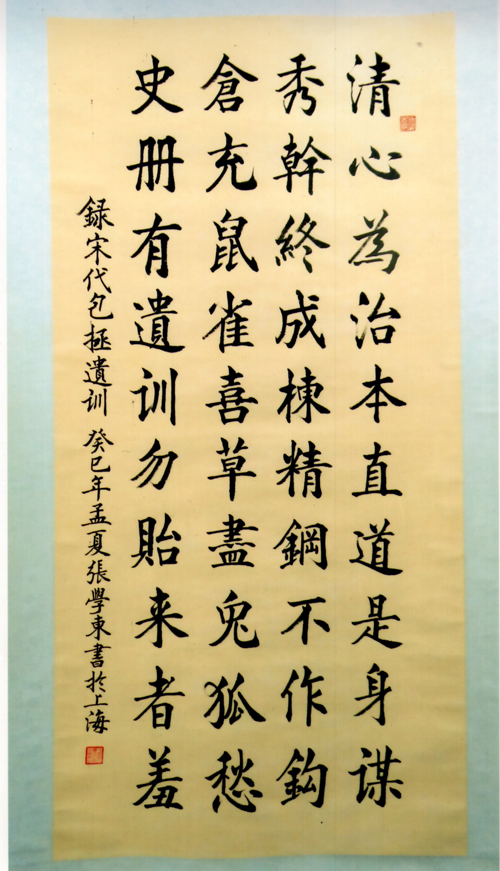 清心為治本直道是身谋
秀幹終成棟精鋼不作鈎
倉充鼠雀喜草盡兔狐愁
史册有遺训勿貽来者羞
録宋代包拯遺训 癸巳年孟夏張學東書於上海